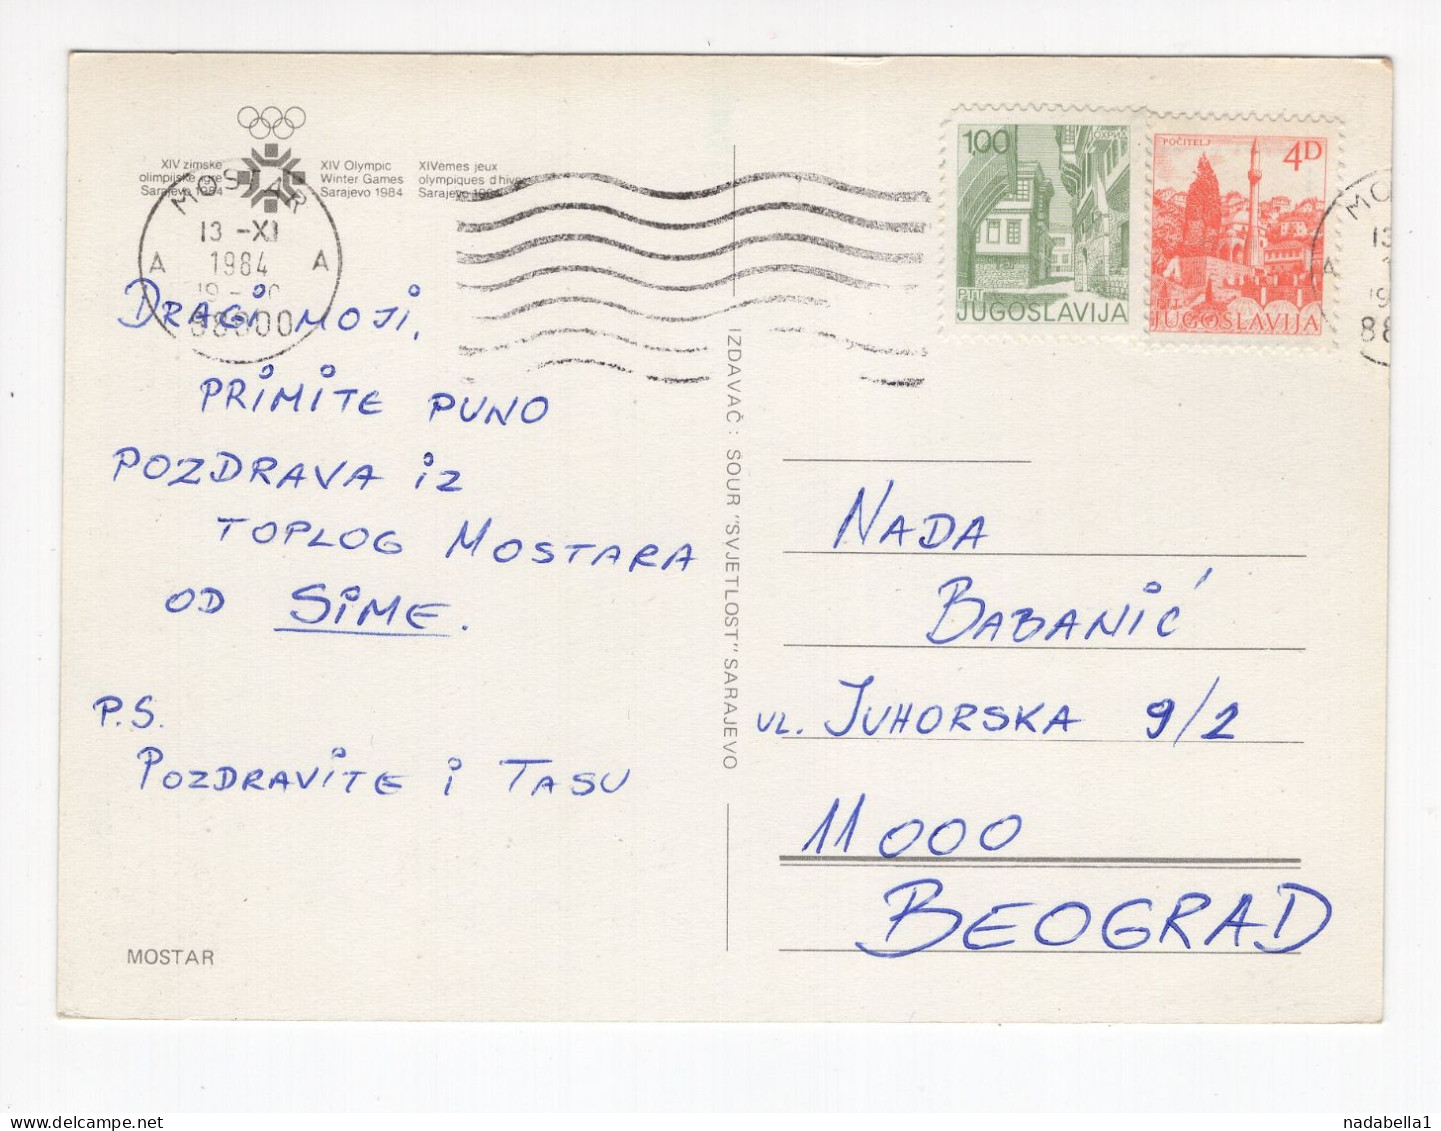 XIV zimske
olimpijske igre
Sarajevo 1984
XIV Olympic
Winter Games
Sarajevo 1984
XIVemes jeux
olympiques d'hiver
Sarajevo 1984
MOSTAR
13 -XI
A 1984 A
88000
DRAGI MOJI,
PRIMITE PUNO
POZDRAVA IZ
TOPLOG MOSTARA
OD SIME.
P.S.
POZDRAVITE I TASU
MOSTAR
IZDAVAČ: SOUR "SVJETLOST" SARAJEVO
1,00
ОХРИД
PTT
JUGOSLAVIJA
POČITELJ
4D
PTT
JUGOSLAVIJA
MO
13
A
19
88
NADA
BABANIĆ
UL. JUHORSKA 9/2
11 000
BEOGRAD
nadabella1